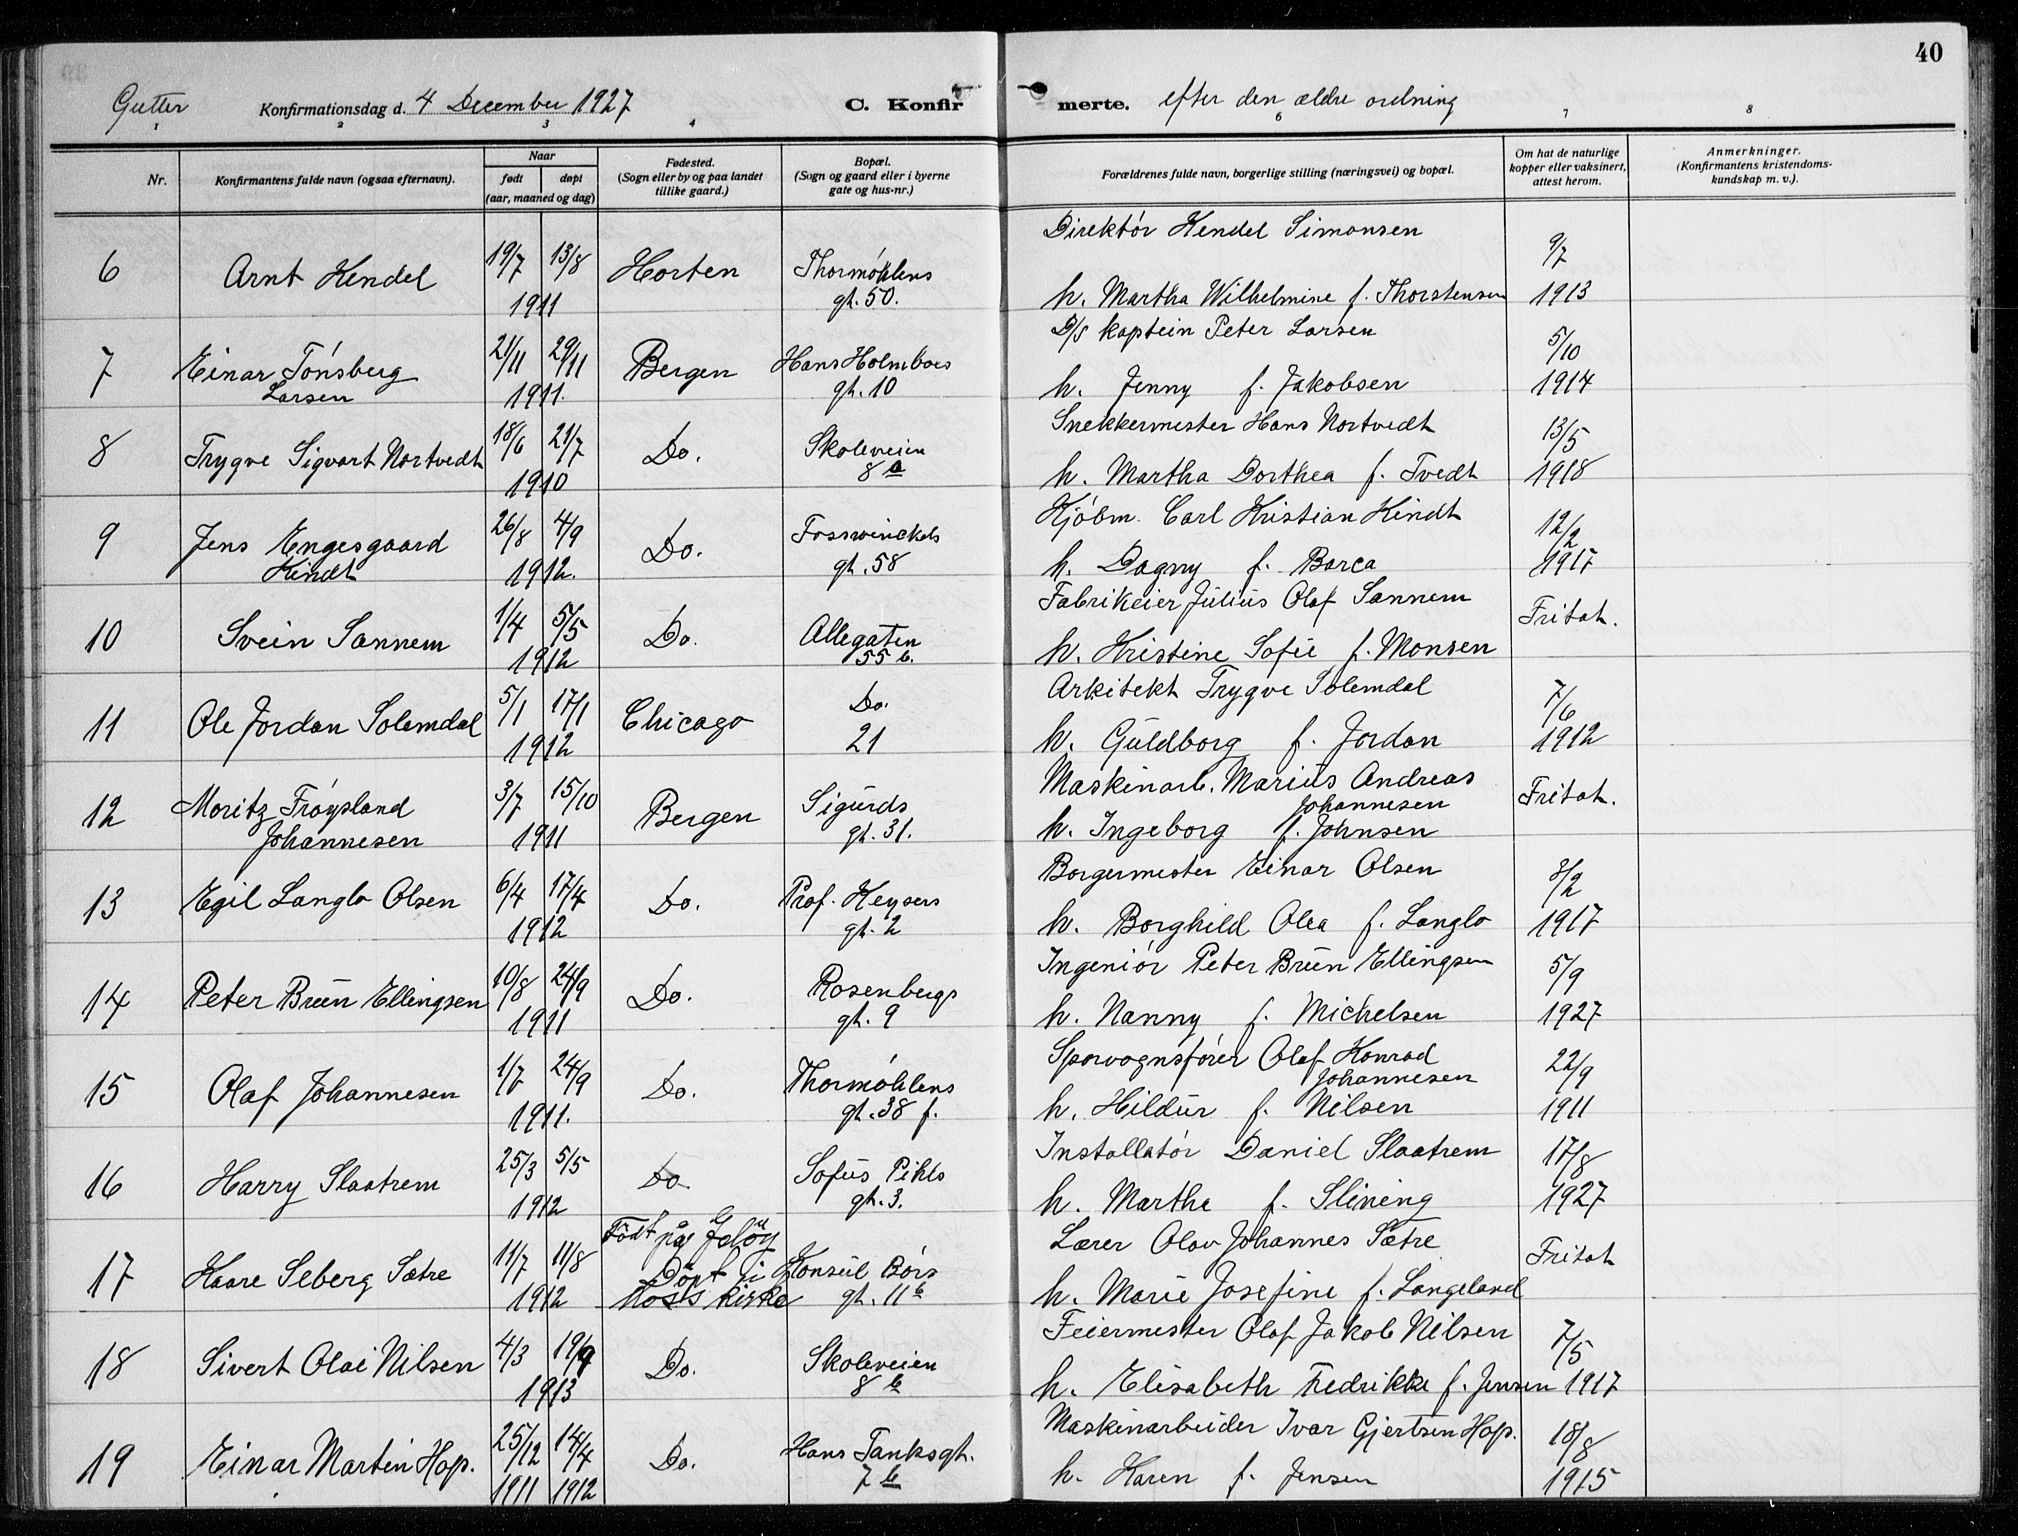 40
Gutter Konfirmationsdag d. 4 December 1927 C. Konfirmerte. efter den ældre ordning
1 2 3 4 6 7 8
Nr.
Konfirmantens fulde navn (ogsaa efternavn).
Naar
født døpt
(aar, maaned og dag)
Fødested.
(Sogn eller by og paa landet
tillike gaard.)
Bopæl.
(Sogn og gaard eller i byerne
gate og hus-nr.)
Forældrenes fulde navn, borgerlige stilling (næringsvei) og bopæl.
Om hat de naturlige
kopper eller vaksinert,
attest herom.
Anmerkninger.
(Konfirmantens kristendoms-
kundskap m. v.).
Direktör Kendel Simonsen
6 Arnt Kendel 19/7 13/8 Horten Thormöhlens 9/7
1911 gt. 50. h. Martha Wilhelmine f. Thorstensen 1913
D/S kaptein Peter Larsen
7 Einar Tönsberg 21/11 29/11 Bergen Hans Holmboes 5/10
Larsen 1911. gt. 10 h. Jenny f. Jakobsen 1914
Snekkermester Hans Nortvedt
8 Trygve Sigvart Nortvedt 18/6 21/7 Do. Skoleveien 13/5
1910 8 a h. Martha Dorthea f. Tvedt 1918
Kjöbm. Carl Kristian Kindt
9 Jens Engesgaard 26/8 4/9 Do. Fosswinckels 12/2
Kindt 1912. gt. 58 h. Dagny f. Barca 1917
Fabrikeier Julius Olaf Sannem
10 Svein Sannem 1/4 5/5 Do. Allegaten Fritat.
1912 55 b. h. Kristine Sofie f. Monsen
Arkitekt Trygve Solemdal
11 Ole Jordan Solemdal 5/1 17/1 Chicago Do. 7/6
1912 21 h. Guldborg f. Jordan 1912
Maskinarb. Marius Andreas
12 Moritz Tröysland 3/7 15/10 Bergen Sigurds Johannesen Fritat.
Johannesen 1911 gt. 31. h. Ingeborg f. Johnsen
Borgermester Einar Olsen
13 Egil Langlo Olsen 6/4 17/4 Do. Prof. Keysers 3/2
1912 gt. 2 h. Borghild Olea f. Langlo 1917
Ingeniör Peter Bruun Ellingsen
14 Peter Bruun Ellingsen 10/8 24/9 Do. Rosenbergs 5/9
1911 gt. 9 h. Nanny f. Michelsen 1927
Sporvognsförer Olaf Konrad
15 Olaf Johannesen 24/9 Do. Thormöhlens Johannesen 22/9
1911. gt. 38 f. h. Hildur f. Nilsen 1911
Installatör Daniel Slaatrem
16 Harry Slaatrem 25/3 5/5 Do. Sofus Pihls 17/8
1912 gt. 3. h. Martha f. Slining 1927
Födt på Jelöy Lærer Olav Johannes Sætre
17 Kaare Seberg Sætre 11/7 11/8 Döpt i Konsul Börs Fritat
1912 Moss kirke gt. 11 b h. Marie Josefine f. Langeland
Feiermester Olaf Jakob Nilsen
18 Sivert Olai Nilsen 4/3 Do. Skoleveien 7/5
1913 8 b h. Elisabeth Fredrikke f. Jensen 1917
Maskinarbeider Ivar Gjertsen Hop.
19 Einar Martin Hop. 25/12 14/4 Do. Hans Tanksgt. 18/8
1911 1912 7 b h. Karen f. Jensen 1915